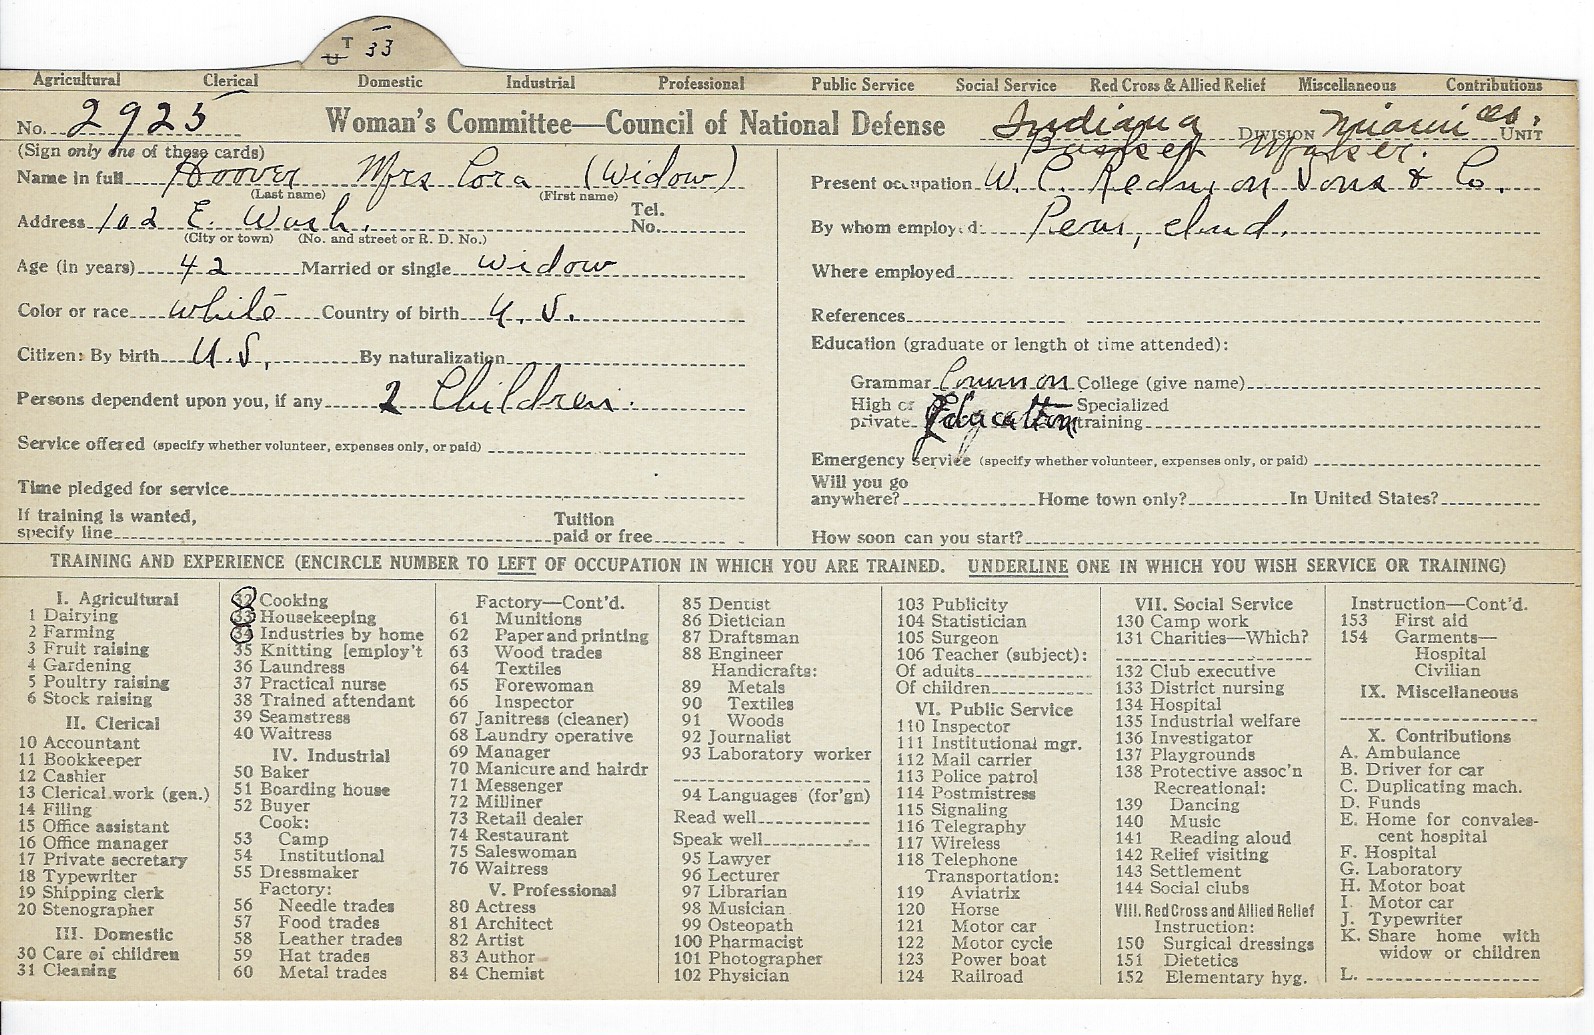 UT 33
Agricultural Clerical Domestic Industrial Professional Public Service Social Service Red Cross & Allied Relief Miscellaneous Contributions
No. 2925 Woman's Committee—Council of National Defense Indiana DIVISION Miami Co. UNIT
(Sign only one of these cards)
Name in full Hoover Mrs Cora (Widow)
(Last name) (First name)
Address 102 E. Wash. Tel. No.
(City or town) (No. and street or R. D. No.)
Age (in years) 42 Married or single Widow
Color or race White Country of birth U. S.
Citizen: By birth U.S. By naturalization
Persons dependent upon you, if any 2 Children.
Service offered (specify whether volunteer, expenses only, or paid)
Time pledged for service
If training is wanted, specify line Tuition paid or free
Basket Maker.
Present occupation W. C. Redmon Sons & Co.
By whom employed: Peru, Ind.
Where employed
References
Education (graduate or length of time attended):
Grammar Common College (give name)
High or private Education Specialized training
Emergency service (specify whether volunteer, expenses only, or paid)
Will you go anywhere? Home town only? In United States?
How soon can you start?
TRAINING AND EXPERIENCE (ENCIRCLE NUMBER TO LEFT OF OCCUPATION IN WHICH YOU ARE TRAINED. UNDERLINE ONE IN WHICH YOU WISH SERVICE OR TRAINING)
I. Agricultural
1 Dairying
2 Farming
3 Fruit raising
4 Gardening
5 Poultry raising
6 Stock raising
II. Clerical
10 Accountant
11 Bookkeeper
12 Cashier
13 Clerical work (gen.)
14 Filing
15 Office assistant
16 Office manager
17 Private secretary
18 Typewriter
19 Shipping clerk
20 Stenographer
III. Domestic
30 Care of children
31 Cleaning
32 Cooking
33 Housekeeping
34 Industries by home
35 Knitting [employ't
36 Laundress
37 Practical nurse
38 Trained attendant
39 Seamstress
40 Waitress
IV. Industrial
50 Baker
51 Boarding house
52 Buyer
Cook:
53 Camp
54 Institutional
55 Dressmaker
Factory:
56 Needle trades
57 Food trades
58 Leather trades
59 Hat trades
60 Metal trades
Factory—Cont'd.
61 Munitions
62 Paper and printing
63 Wood trades
64 Textiles
65 Forewoman
66 Inspector
67 Janitress (cleaner)
68 Laundry operative
69 Manager
70 Manicure and hairdr
71 Messenger
72 Milliner
73 Retail dealer
74 Restaurant
75 Saleswoman
76 Waitress
V. Professional
80 Actress
81 Architect
82 Artist
83 Author
84 Chemist
85 Dentist
86 Dietician
87 Draftsman
88 Engineer
Handicrafts:
89 Metals
90 Textiles
91 Woods
92 Journalist
93 Laboratory worker
94 Languages (for'gn)
Read well
Speak well
95 Lawyer
96 Lecturer
97 Librarian
98 Musician
99 Osteopath
100 Pharmacist
101 Photographer
102 Physician
103 Publicity
104 Statistician
105 Surgeon
106 Teacher (subject):
Of adults
Of children
VI. Public Service
110 Inspector
111 Institutional mgr.
112 Mail carrier
113 Police patrol
114 Postmistress
115 Signaling
116 Telegraphy
117 Wireless
118 Telephone
Transportation:
119 Aviatrix
120 Horse
121 Motor car
122 Motor cycle
123 Power boat
124 Railroad
VII. Social Service
130 Camp work
131 Charities—Which?
132 Club executive
133 District nursing
134 Hospital
135 Industrial welfare
136 Investigator
137 Playgrounds
138 Protective assoc'n
Recreational:
139 Dancing
140 Music
141 Reading aloud
142 Relief visiting
143 Settlement
144 Social clubs
VIII. Red Cross and Allied Relief
Instruction:
150 Surgical dressings
151 Dietetics
152 Elementary hyg.
Instruction—Cont'd.
153 First aid
154 Garments—
Hospital
Civilian
IX. Miscellaneous
X. Contributions
A. Ambulance
B. Driver for car
C. Duplicating mach.
D. Funds
E. Home for convales-
cent hospital
F. Hospital
G. Laboratory
H. Motor boat
I. Motor car
J. Typewriter
K. Share home with
widow or children
L.